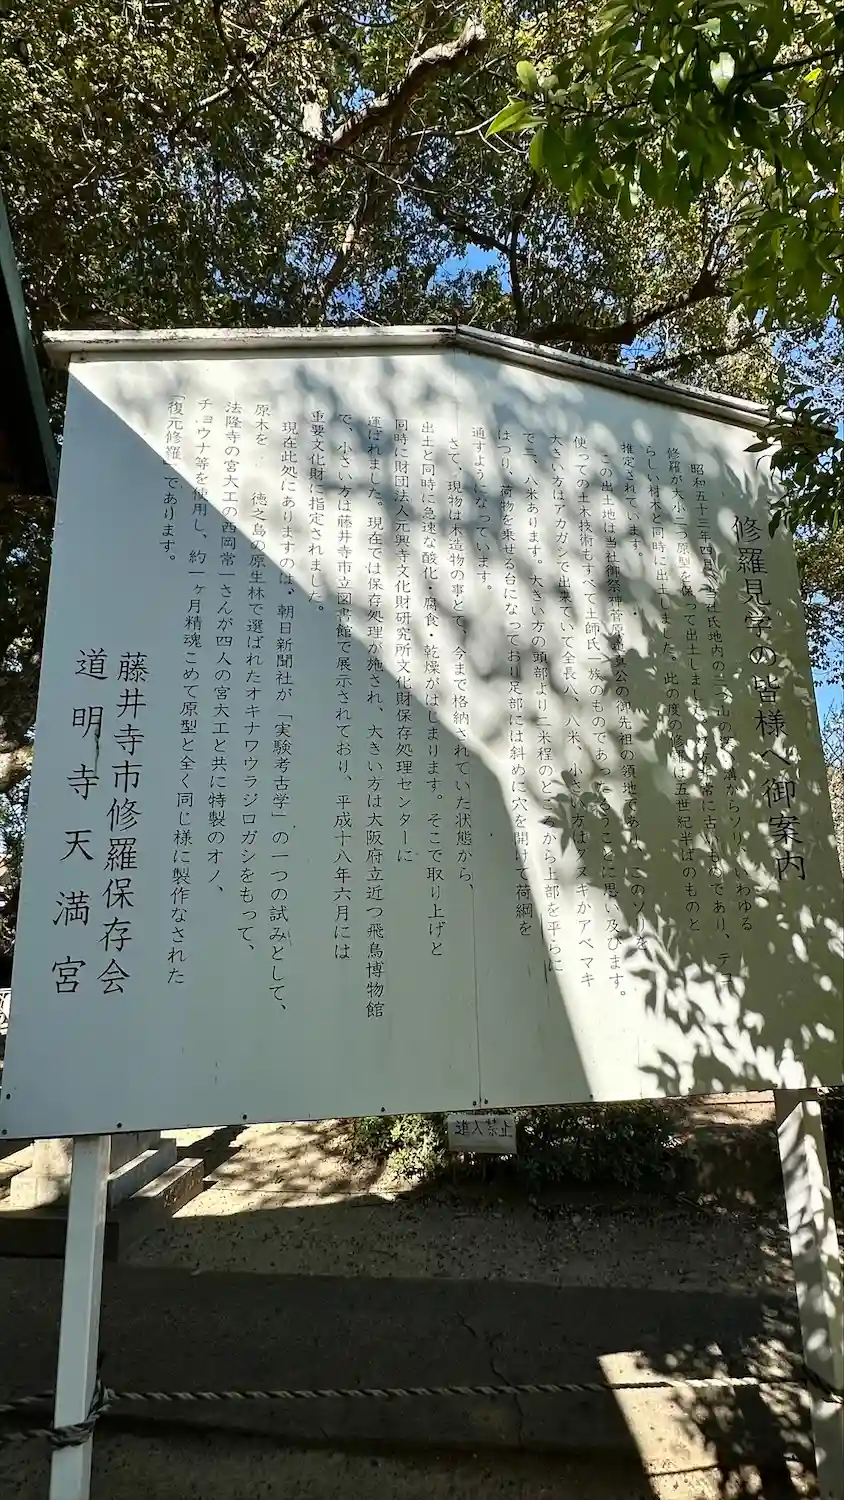 修羅見学の皆様へ御案内
昭和五十三年四月 当社氏地内の三つ山の 溝からソリ、いわゆる
修羅が大小二つ原型を保って出土しました。 非常に古いものであり、テコ
らしい材木と同時に出土しました。此の度の修羅は五世紀半ばのものと
推定されています。
この出土地は当社御祭神菅原道真公の御先祖の領地であり、このソリを
使っての土木技術もすべて土師氏一族のものであったろうことに思い及びます。
大きい方はアカガシで出来ていて全長八、八米、小さい方はクヌギかアベマキ
で二、八米あります。大きい方の頭部より二米程のところから上部を平らに
はつり、荷物を乗せる台になっており足部には斜めに穴を開けて荷綱を
通すようになっています。
さて、現物は木造物の事とて、今まで格納されていた状態から、
出土と同時に急速な酸化・腐食・乾燥がはじまります。そこで取り上げと
同時に財団法人元興寺文化財研究所文化財保存処理センターに
運ばれました。現在では保存処理が施され、大きい方は大阪府立近つ飛鳥博物館
で、小さい方は藤井寺市立図書館で展示されており、平成十八年六月には
重要文化財に指定されました。
現在此処にありますのは、朝日新聞社が「実験考古学」の一つの試みとして、
原木を 徳之島の原生林で選ばれたオキナワウラジロガシをもって、
法隆寺の宮大工の西岡常一さんが四人の宮大工と共に特製のオノ、
チョウナ等を使用し、約一ヶ月精魂こめて原型と全く同じ様に製作なされた
「復元修羅」であります。
藤井寺市修羅保存会
道明寺天満宮
進入禁止